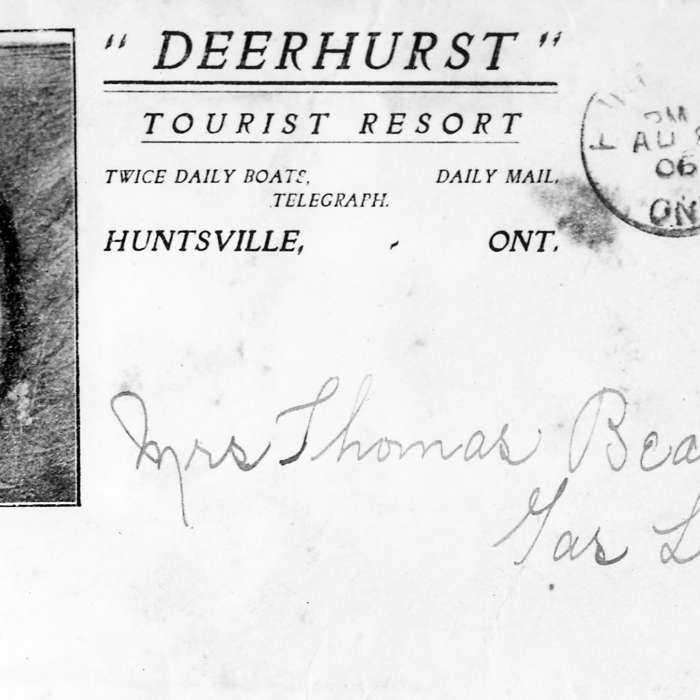 " DEERHURST "
TOURIST RESORT
TWICE DAILY BOATS, DAILY MAIL,
TELEGRAPH.
HUNTSVILLE, - ONT.
PM
AU
06
ONT
Mrs Thomas Bea
Gas L